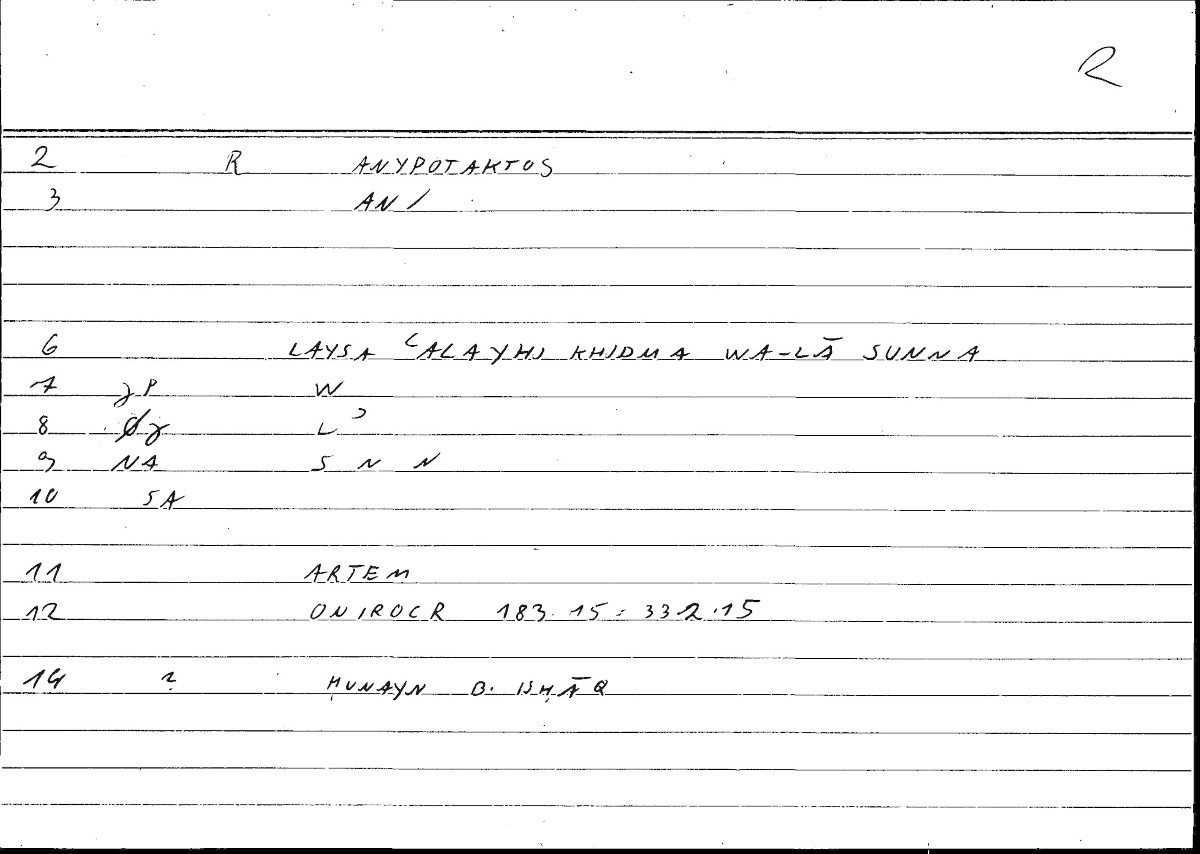 R
2 R ANYPOTAKTOS
3 AN/
6 LAYSA ʿALAYHI KHIDMA WA-LĀ SUNNA
7 γP W
8 Øγ Lʾ
9 NA S N N
10 SA
11 ARTEM
12 ONIROCR 183.15 = 332.15
14 ? ḤUNAYN B. ISḤĀQ